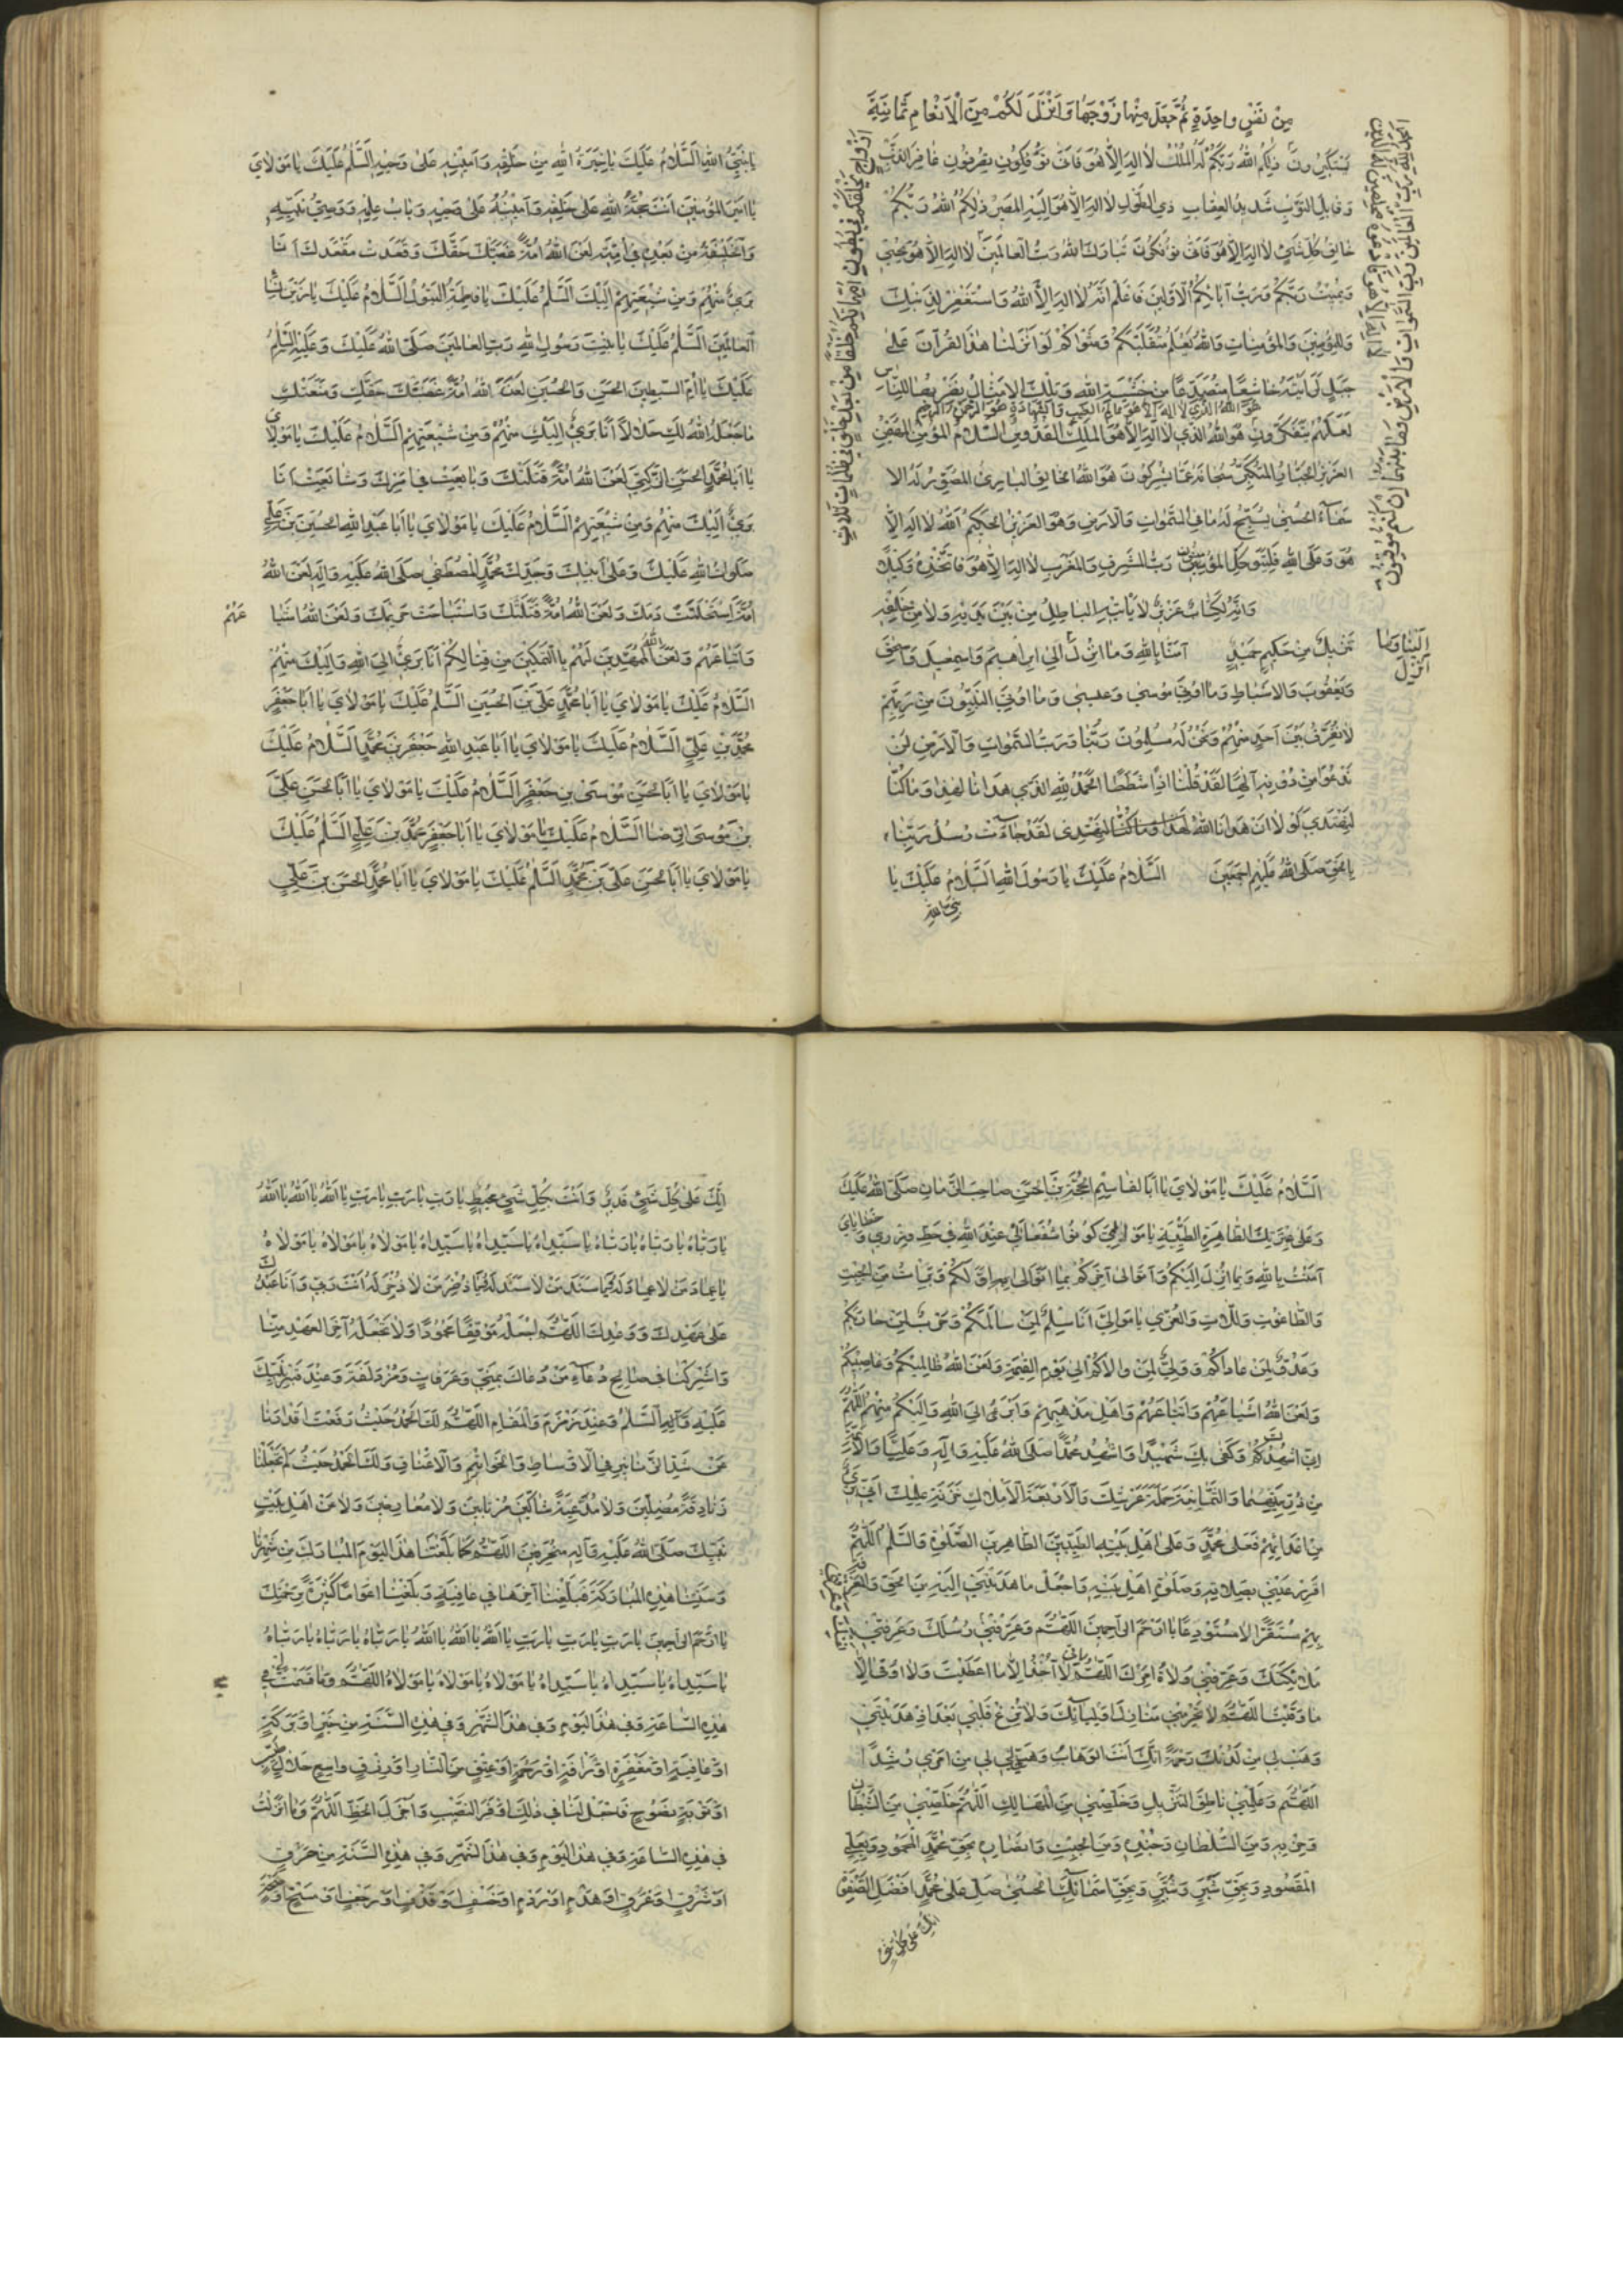 مِنْ نَفْسٍ واحِدَةٍ ثُمَّ جَعَلَ مِنْها زَوْجَها وَاَنْزَلَ لَكُمْ مِنَ الْاَنْعامِ ثَمانِيَةَ
اَزْواجٍ يَخْلُقُكُمْ فى بُطُونِ اُمَّهاتِكُمْ خَلْقًا مِنْ بَعْدِ خَلْقٍ فى ظُلُماتٍ ثَلاثٍ
يَسْتَكْبِرُونَ ذلِكُمُ اللهُ رَبُّكُمْ لَهُ الْمُلْكُ لا اِلهَ اِلاّ هُوَ فَاَنّى تُؤْفَكُونَ غافِرِ الذَّنْبِ
وَقابِلِ التَّوْبِ شَديدِ العِقابِ ذِي الطَّوْلِ لا اِلهَ اِلاّ هُوَ اِلَيْهِ المَصيرُ ذلِكُمُ اللهُ رَبُّكُمْ
خالِقُ كُلِّ شَيْءٍ لا اِلهَ اِلاّ هُوَ فَاَنّى تُؤْفَكُونَ تَبارَكَ اللهُ رَبُّ العالَمينَ لا اِلهَ اِلاّ هُوَ يُحْيي
وَيُميتُ رَبُّكُمْ وَرَبُّ آبائِكُمُ الاَوَّلينَ فَاعْلَمْ اَنَّهُ لا اِلهَ اِلاَّ اللهُ وَاسْتَغْفِرْ لِذَنْبِكَ
وَلِلْمُؤْمِنينَ وَالمُؤْمِناتِ وَاللهُ يَعْلَمُ مُتَقَلَّبَكُمْ وَمَثْواكُمْ لَوْ اَنْزَلْنا هذَا القُرْآنَ عَلى
جَبَلٍ لَرَاَيْتَهُ خاشِعًا مُتَصَدِّعًا مِنْ خَشْيَةِ اللهِ وَتِلْكَ الاَمْثالُ نَضْرِبُها لِلنّاسِ
هُوَ اللهُ الَّذي لا اِلهَ اِلاّ هُوَ عالِمُ الغَيْبِ وَالشَّهادَةِ هُوَ الرَّحْمنُ الرَّحيمُ
لَعَلَّهُمْ يَتَفَكَّرُونَ هُوَ اللهُ الَّذي لا اِلهَ اِلاّ هُوَ المَلِكُ القُدُّوسُ السَّلامُ المُؤْمِنُ المُهَيْمِنُ
العَزيزُ الجَبّارُ المُتَكَبِّرُ سُبْحانَهُ عَمّا يُشْرِكُونَ هُوَ اللهُ الخالِقُ البارِئُ المُصَوِّرُ لَهُ الاَ
سْماءُ الحُسْنى يُسَبِّحُ لَهُ ما فِي السَّمواتِ وَالاَرْضِ وَهُوَ العَزيزُ الحَكيمُ اَللهُ لا اِلهَ اِلاّ
هُوَ وَعَلَى اللهِ فَلْيَتَوَكَّلِ المُؤْمِنُونَ رَبُّ المَشْرِقِ وَالمَغْرِبِ لا اِلهَ اِلاّ هُوَ فَاتَّخِذْهُ وَكيلاً
وَاِنَّهُ لَكِتابٌ عَزيزٌ لا يَأْتيهِ الباطِلُ مِنْ بَيْنِ يَدَيْهِ وَلا مِنْ خَلْفِهِ
تَنْزيلٌ مِنْ حَكيمٍ حَميدٍ آمَنّا بِاللهِ وَما اُنْزِلَ اِلى اِبْراهيمَ وَاِسْمعيلَ وَاِسْحقَ
اِلَيْنا وَما اُنْزِلَ
وَيَعْقُوبَ وَالاَسْباطِ وَما اُوتِيَ مُوسى وَعيسى وَما اُوتِيَ النَّبِيُّونَ مِنْ رَبِّهِمْ
لا نُفَرِّقُ بَيْنَ اَحَدٍ مِنْهُمْ وَنَحْنُ لَهُ مُسْلِمُونَ رَبُّنا رَبُّ السَّمواتِ وَالاَرْضِ لَنْ
نَدْعُوَا مِنْ دُونِهِ اِلهًا لَقَدْ قُلْنا اِذًا شَطَطًا الحَمْدُ لِلّهِ الَّذي هَدانا لِهذا وَما كُنّا
لِنَهْتَدِيَ لَوْ لا اَنْ هَدانَا اللهُ لَقَدْ جاءَتْ رُسُلُ رَبِّنا
بِالحَقِّ صَلَّى اللهُ عَلَيْهِمْ اَجْمَعينَ السَّلامُ عَلَيْكَ يا رَسُولَ اللهِ السَّلامُ عَلَيْكَ يا
نَبِيَّ اللهِ
يا نَبِيَّ اللهِ السَّلامُ عَلَيْكَ يا خِيَرَةَ اللهِ مِنْ خَلْقِهِ وَاَمينَهُ عَلى وَحْيِهِ السَّلمُ عَلَيْكَ يا مَوْلايَ
يا اَميرَ المُؤْمِنينَ اَنْتَ حُجَّةُ اللهِ عَلى خَلْقِهِ وَاَمينُهُ عَلى وَحْيِهِ وَبابُ عِلْمِهِ وَوَصِيُّ نَبِيِّهِ
وَالخَليفَةُ مِنْ بَعْدِهِ في اُمَّتِهِ لَعَنَ اللهُ اُمَّةً غَصَبَتْكَ حَقَّكَ وَقَعَدَتْ مَقْعَدَكَ اَنَا
بَريءٌ مِنْهُمْ وَمِنْ شيعَتِهِمْ اِلَيْكَ السَّلمُ عَلَيْكِ يا فاطِمَةُ البَتُولُ السَّلامُ عَلَيْكِ يا زَيْنَ نِساءِ
العالَمينَ السَّلمُ عَلَيْكِ يا بِنْتَ رَسُولِ اللهِ رَبِّ العالَمينَ صَلَّى اللهُ عَلَيْكِ وَعَلَيْهِ السَّلمُ
عَلَيْكِ يا اُمَّ السِّبْطَيْنِ الحَسَنِ وَالحُسَيْنِ لَعَنَ اللهُ اُمَّةً غَصَبَتْكِ حَقَّكِ وَمَنَعَتْكِ
ما جَعَلَهُ اللهُ لَكِ حَلالاً اَنَا بَريءٌ اِلَيْكِ مِنْهُمْ وَمِنْ شيعَتِهِمْ السَّلامُ عَلَيْكَ يا مَوْلايَ
يا اَبا مُحَمَّدٍ الحَسَنِ الزَّكِيَّ لَعَنَ اللهُ اُمَّةً قَتَلَتْكَ وَبايَعَتْ في اَمْرِكَ وَشايَعَتْ اَنَا
بَريءٌ اِلَيْكَ مِنْهُمْ وَمِنْ شيعَتِهِمْ السَّلامُ عَلَيْكَ يا مَوْلايَ يا اَبا عَبْدِ اللهِ الحُسَيْنَ بْنَ عَلِيٍّ
صَلَواتُ اللهِ عَلَيْكَ وَعَلى اَبيكَ وَجَدِّكَ مُحَمَّدٍ المُصْطَفى صَلَّى اللهُ عَلَيْهِ وَآلِهِ لَعَنَ اللهُ
اُمَّةً اسْتَحَلَّتْ دَمَكَ وَلَعَنَ اللهُ اُمَّةً قَتَلَتْكَ وَاسْتَباحَتْ حَريمَكَ وَلَعَنَ اللهُ اَشْيا عَهُمْ
وَاَتْباعَهُمْ وَلَعَنَ اللهُ المُمَهِّدينَ لَهُمْ بِالتَّمْكينِ مِنْ قِتالِكُمْ اَنَا بَريءٌ اِلَى اللهِ وَاِلَيْكَ مِنْهُمْ
السَّلامُ عَلَيْكَ يا مَوْلايَ يا اَبا مُحَمَّدٍ عَلِيَّ بْنَ الحُسَيْنِ السَّلمُ عَلَيْكَ يا مَوْلايَ يا اَبا جَعْفَرٍ
مُحَمَّدَ بْنَ عَلِيٍّ السَّلامُ عَلَيْكَ يا مَوْلايَ يا اَبا عَبْدِ اللهِ جَعْفَرَ بْنَ مُحَمَّدٍ السَّلامُ عَلَيْكَ
يا مَوْلايَ يا اَبَا الحَسَنِ مُوسَى بْنَ جَعْفَرٍ السَّلامُ عَلَيْكَ يا مَوْلايَ يا اَبَا الحَسَنِ عَلِيَّ
بْنَ مُوسَى الرِّضا السَّلامُ عَلَيْكَ يا مَوْلايَ يا اَبا جَعْفَرٍ مُحَمَّدَ بْنَ عَلِيٍّ السَّلمُ عَلَيْكَ
يا مَوْلايَ يا اَبَا الحَسَنِ عَلِيَّ بْنَ مُحَمَّدٍ السَّلمُ عَلَيْكَ يا مَوْلايَ يا اَبا مُحَمَّدٍ الحَسَنَ بْنَ عَلِيٍّ
السَّلامُ عَلَيْكَ يا مَوْلايَ يا اَبَا القاسِمِ الحُجَّةَ بْنَ الحَسَنِ صاحِبَ الزَّمانِ صَلَّى اللهُ عَلَيْكَ
وَعَلى عِتْرَتِكَ الطّاهِرَةِ الطَّيِّبَةِ يا مَوالِيَّ كُونُوا شُفَعائي عِنْدَ اللهِ في حَطِّ وِزْري وَخَطايايَ
آمَنْتُ بِاللهِ وَبِما اُنْزِلَ اِلَيْكُمْ وَاَتَوالى آخِرَكُمْ بِما اَتَوالى بِهِ اَوَّلَكُمْ وَبَرِئْتُ مِنَ الجِبْتِ
وَالطّاغُوتِ وَاللاّتِ وَالعُزّى يا مَوالِيَّ اَنَا سِلْمٌ لِمَنْ سالَمَكُمْ وَحَرْبٌ لِمَنْ حارَبَكُمْ
وَعَدُوٌّ لِمَنْ عاداكُمْ وَوَلِيٌّ لِمَنْ والاكُمْ اِلى يَوْمِ القِيمَةِ وَلَعَنَ اللهُ ظالِميكُمْ وَغاصِبيكُمْ
وَلَعَنَ اللهُ اَشْياعَهُمْ وَاَتْباعَهُمْ وَاَهْلَ مَذْهَبِهِمْ وَاَبْرَءُ اِلَى اللهِ وَاِلَيْكُمْ مِنْهُمْ اللّهُمَّ
اِنّي اُشْهِدُكَ وَكَفى بِكَ شَهيدًا وَاُشْهِدُ مُحَمَّدًا صَلَّى اللهُ عَلَيْهِ وَآلِهِ وَعَلِيًّا وَالاَئِمَّةَ
مِنْ ذُرِّيَّتِهِما وَالثَّمانِيَةَ حَمَلَةَ عَرْشِكَ وَالاَرْبَعَةَ الاَمْلاكَ خَزَنَةَ عِلْمِكَ اَنّي بَريءٌ
مِنْ اَعْدائِهِمْ فَعَلى مُحَمَّدٍ وَعَلى اَهْلِ بَيْتِهِ الطَّيِّبينَ الطّاهِرينَ الصَّلوةُ وَالسَّلمُ اللّهُمَّ
اَقْرِرْ عَيْني بِصَلاتِهِ وَصَلوةِ اَهْلِ بَيْتِهِ وَاجْعَلْ ما هَدَيْتَني اِلَيْهِ مِنَ الحَقِّ وَالمَعْرِفَةِ
بِهِمْ مُسْتَقَرًّا لا مُسْتَوْدَعًا يا اَرْحَمَ الرّاحِمينَ اللّهُمَّ وَعَرِّفْني رُسُلَكَ وَعَرِّفْني
مَلائِكَتَكَ وَعَرِّفْني وُلاةَ اَمْرِكَ اللّهُمَّ اِنّي لا آخُذُ اِلاّ ما اَعْطَيْتَ وَلا اُوقى اِلاّ
ما وَقَيْتَ اللّهُمَّ لا تَحْرِمْني مَنازِلَ اَوْلِيائِكَ وَلا تُزِغْ قَلْبي بَعْدَ اِذْ هَدَيْتَني
وَهَبْ لي مِنْ لَدُنْكَ رَحْمَةً اِنَّكَ اَنْتَ الوَهّابُ وَهَيِّئْ لي مِنْ اَمْري رُشْدًا
اللّهُمَّ وَعَلِّمْني ناطِقَ التَّنْزيلِ وَخَلِّصْني مِنَ المَهالِكِ اللّهُمَّ خَلِّصْني مِنَ الشَّيْطانِ
وَحِزْبِهِ وَمِنَ السُّلْطانِ وَجُنْدِهِ وَمِنَ الجِبْتِ وَاَنْصارِهِ بِحَقِّ مُحَمَّدٍ المَحْمُودِ وَبِعَلِيٍّ
المَقْصُودِ وَبِحَقِّ شَبَّرٍ وَشُبَيْرٍ وَبِحَقِّ اَسْمائِكَ الحُسْنى صَلِّ عَلى مُحَمَّدٍ اَفْضَلِ الصَّفْوَةِ
اِنَّكَ عَلى كُلِّ شَيْءٍ
اِنَّكَ عَلى كُلِّ شَيْءٍ قَديرٌ وَاَنْتَ بِكُلِّ شَيْءٍ مُحيطٌ يا رَبِّ يا رَبِّ يا رَبِّ يا اَللهُ يا اَللهُ يا اَللهُ
يا رَبّاهُ يا رَبّاهُ يا رَبّاهُ يا سَيِّداهُ يا سَيِّداهُ يا سَيِّداهُ يا مَوْلاهُ يا مَوْلاهُ يا مَوْلاهُ
يا عِمادَ مَنْ لا عِمادَ لَهُ يا سَنَدَ مَنْ لا سَنَدَ لَهُ يا ذُخْرَ مَنْ لا ذُخْرَ لَهُ اَنْتَ رَبّي وَاَنَا عَبْدُكَ
عَلى عَهْدِكَ وَوَعْدِكَ اللّهُمَّ اجْعَلْهُ مَوْقِفًا مَحْمُودًا وَلا تَجْعَلْهُ آخِرَ العَهْدِ مِنّا
وَاَشْرِكْنا في صالِحِ دُعاءِ مَنْ دَعاكَ بِمِنى وَعَرَفاتٍ وَمُزْدَلِفَةَ وَعِنْدَ قَبْرِ نَبِيِّكَ
عَلَيْهِ وَآلِهِ السَّلمُ وَعِنْدَ زَمْزَمَ وَالمَقامِ اللّهُمَّ لَكَ الحَمْدُ حَيْثُ رَفَعْتَ اَقْدارَنا
عَنْ شَدِّ الزَّنانيرِ فِي الاَوْساطِ وَالخَواتيمِ وَالاَعْناقِ وَلَكَ الحَمْدُ حَيْثُ لَمْ تَجْعَلْنا
زَنادِقَةً مُضِلّينَ وَلا مُدَّعِيَةً شاكّينَ مُرْتابينَ وَلا مُعارِضينَ وَلا عَنْ اَهْلِ بَيْتِ
نَبِيِّكَ صَلَّى اللهُ عَلَيْهِ وَآلِهِ مُنْحَرِفينَ اللّهُمَّ كَما بَلَّغْتَنا هذَا اليَوْمَ المُبارَكَ مِنْ شَهْرِنا
وَسَنَتِنا هذِهِ المُبارَكَةِ فَبَلِّغْنا آخِرَها في عافِيَةٍ وَبَلِّغْنا اَعْوامًا كَثيرَةً بِرَحْمَتِكَ
يا اَرْحَمَ الرّاحِمينَ يا رَبِّ يا رَبِّ يا رَبِّ يا اَللهُ يا اَللهُ يا اَللهُ يا رَبّاهُ يا رَبّاهُ يا رَبّاهُ
يا سَيِّداهُ يا سَيِّداهُ يا سَيِّداهُ يا مَوْلاهُ يا مَوْلاهُ يا مَوْلاهُ اللّهُمَّ وَما قَسَمْتَ في
هذِهِ السّاعَةِ وَفي هذَا اليَوْمِ وَفي هذَا الشَّهْرِ وَفي هذِهِ السَّنَةِ مِنْ خَيْرٍ اَوْ بَرَكَةٍ
اَوْ عافِيَةٍ اَوْ مَغْفِرَةٍ اَوْ رَاْفَةٍ اَوْ رَحْمَةٍ اَوْ عِتْقٍ مِنَ النّارِ اَوْ رِزْقٍ واسِعٍ حَلالٍ طَيِّبٍ
اَوْ تَوْبَةٍ نَصُوحٍ فَاجْعَلْ لَنا في ذلِكَ اَوْفَرَ النَّصيبِ وَاَجْزَلَ الحَظِّ اللّهُمَّ وَما اَنْزَلْتَ
في هذِهِ السّاعَةِ وَفي هذَا اليَوْمِ وَفي هذَا الشَّهْرِ وَفي هذِهِ السَّنَةِ مِنْ حَرْقٍ
اَوْ شَرَقٍ اَوْ غَرَقٍ اَوْ هَدْمٍ اَوْ رَدْمٍ اَوْ خَسْفٍ اَوْ قَذْفٍ اَوْ رَجْفٍ اَوْ مَسْخٍ